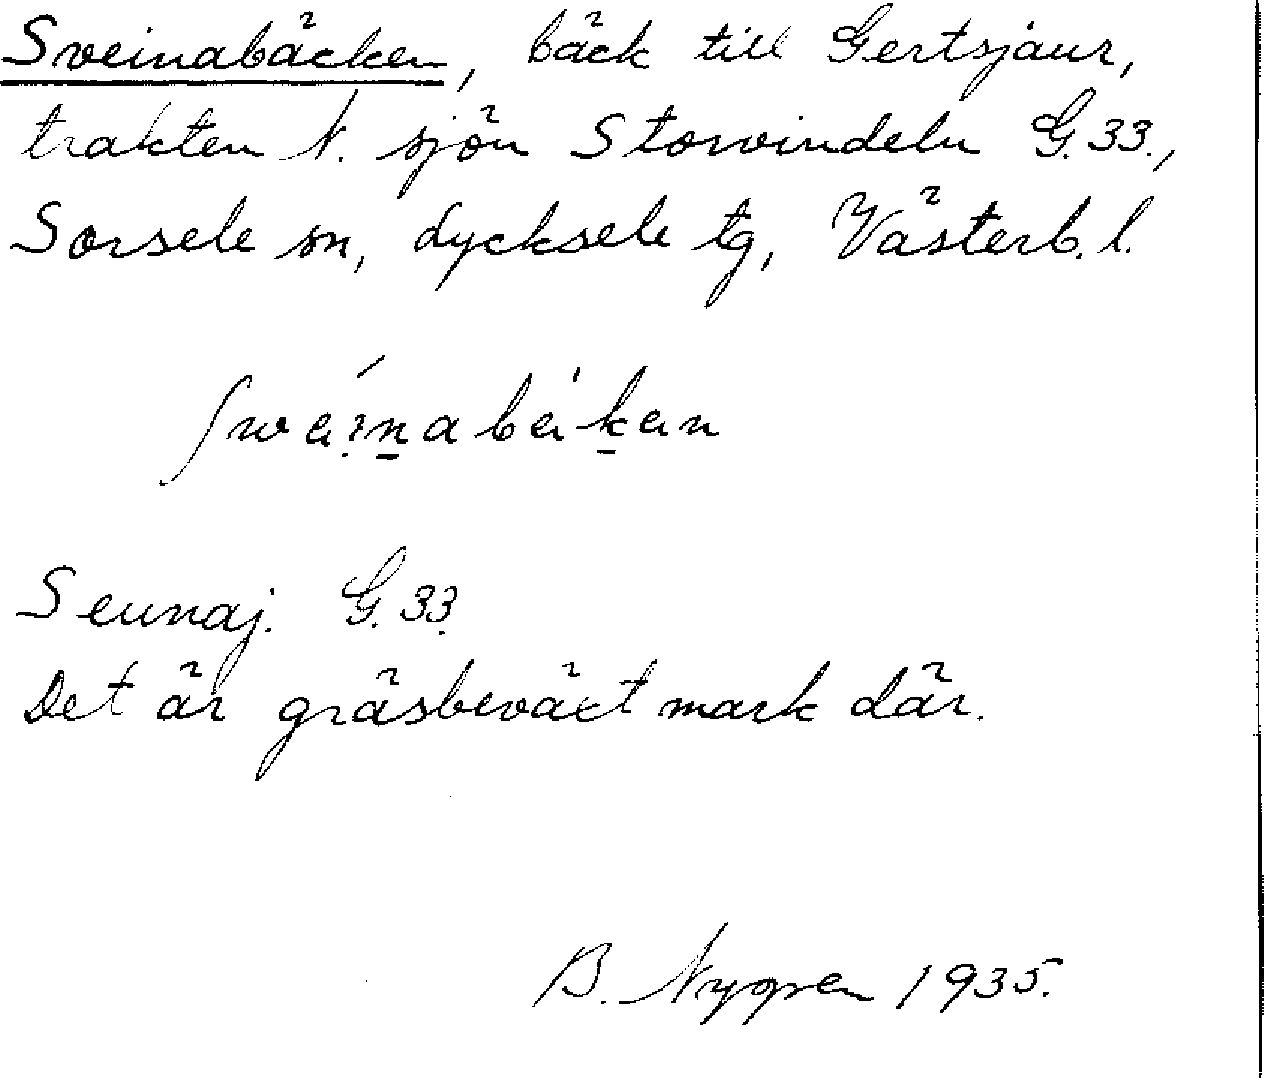 Sveinabäcken, bäck till Gertsjaur,
trakten N. sjön Storvindeln G. 33.,
Sorsele sn, Lycksele tg, Västerb. l.
Seunaj. G. 33.
Det är gräsbeväxt mark där.
B. Nygren 1935.